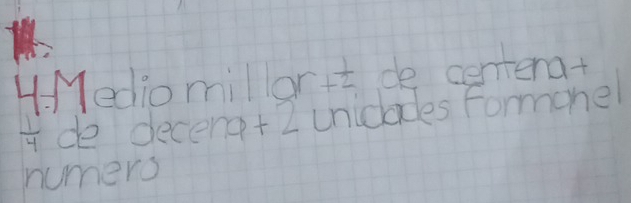 4.-Medio millar + 1/2 de centena +
1/4 de decena + 2 unidades forman el
numero